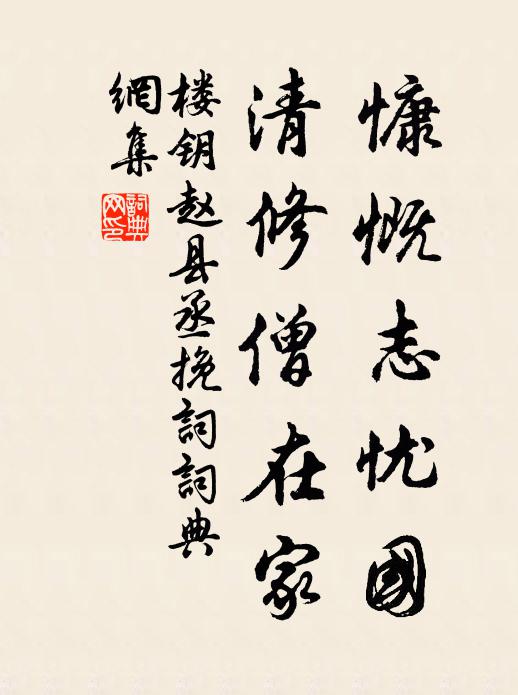 慷慨志忧國
清修僧在家
楼钥赵县丞挽詞詞典
網集
詞典
网印